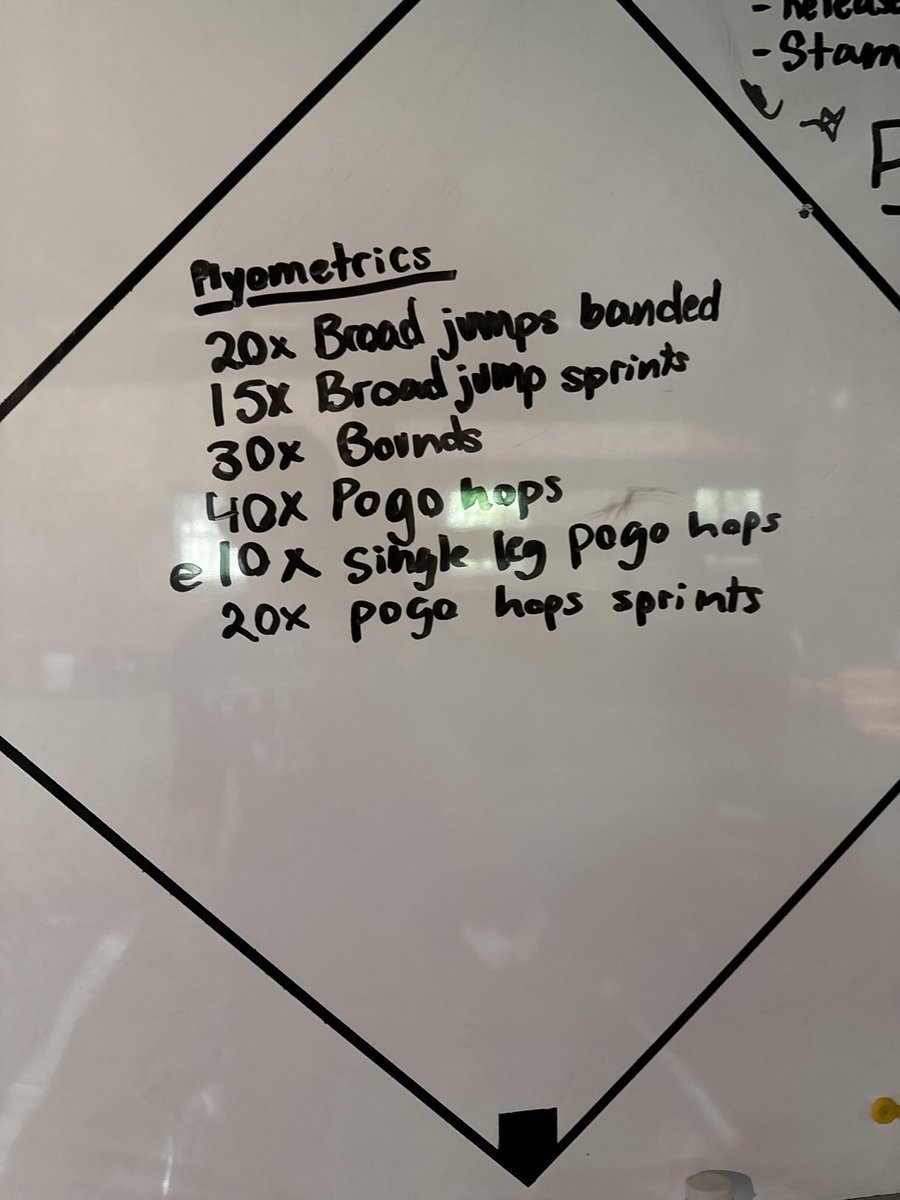 - Release
- Stam
P
Plyometrics
20x Broad jumps banded
15x Broad jump sprints
30x Bounds
40x Pogo hops
e 10x single leg pogo hops
20x pogo hops sprints